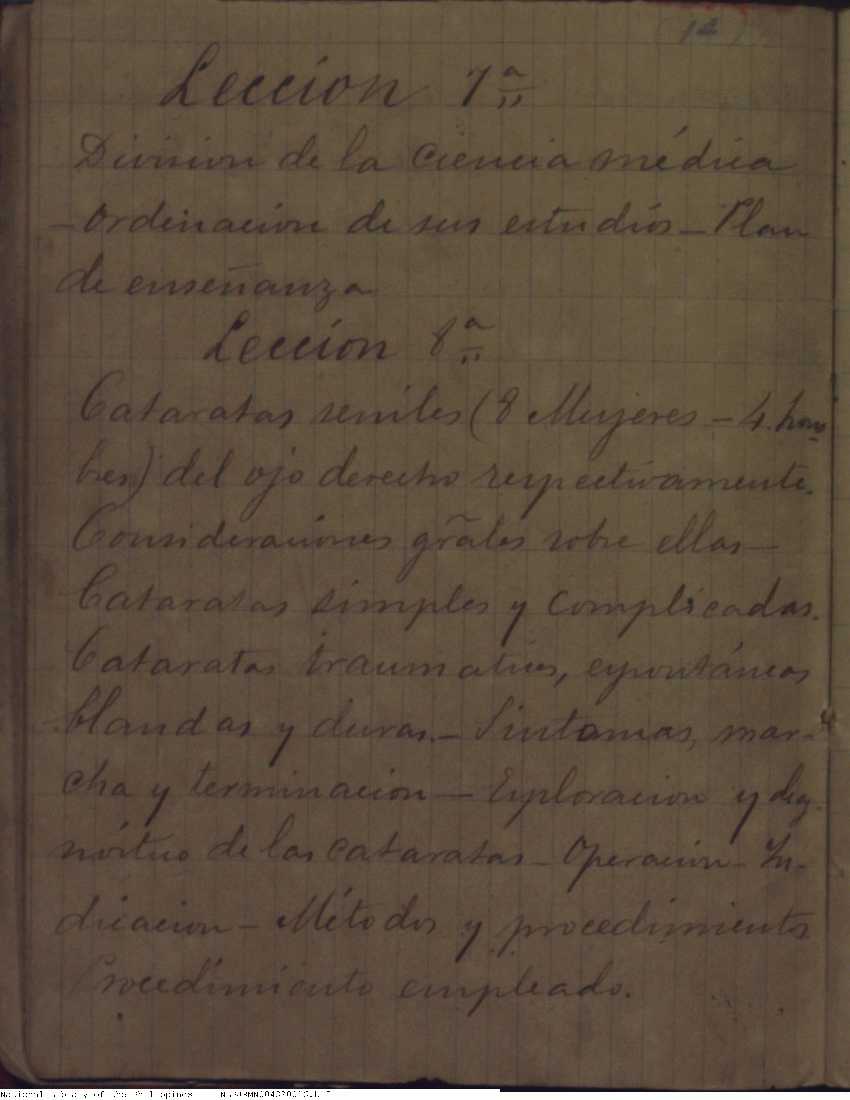 (14)
Leccion 7ª
Division de la Ciencia médica
- Ordenación de sus estudios - Plan
de enseñanza
Lección 8ª
Cataratas seniles (8 Mujeres - 4 hom
bres) del ojo derecho respectivamente.
Consideraciones grãles sobre ellas -
Cataratas simples y complicadas.
Cataratas traumatica, espontáneas
blandas y duras. - Sintomas, mar-
cha y terminacion - Exploracion y diag-
nóstico de las cataratas - Operacion - In-
dicacion - Métodos y procedimientos
Procedimiento empleado.
National Library of the Philippines